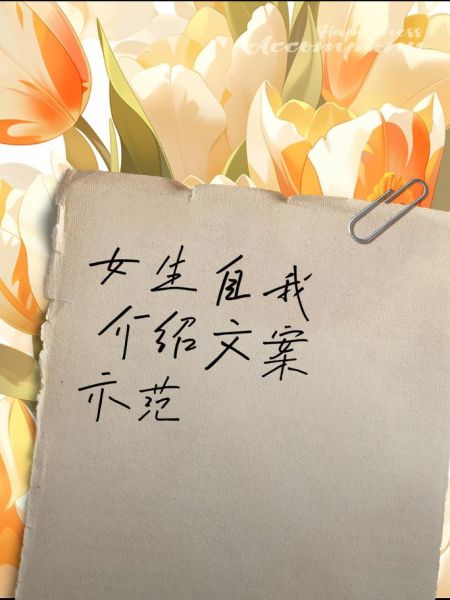 Happiness
Accompany
女生自我
介绍文案
示范